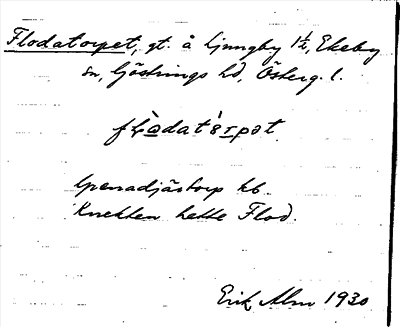 Flodatorpet, gt. å Ljungby 1½, Ekeby
sn, Göstrings hd, Österg. l.
flodatórpat
Grenadjästorp hb.
Knekten hette Flod.
Erik Alm 1930